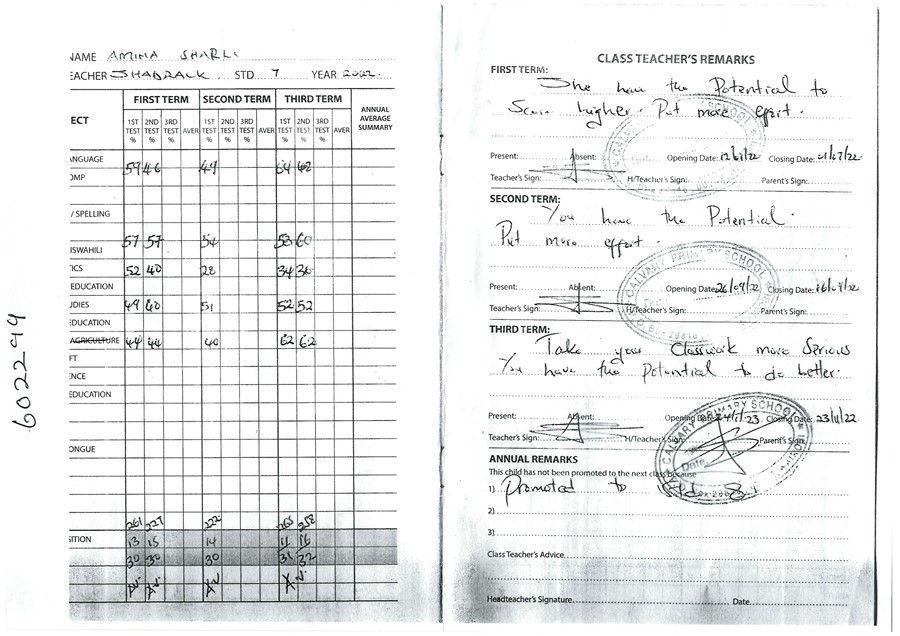 NAME AMINA SHARLI
EACHER SHADRACK STD 7 YEAR 2022
ECT
FIRST TERM SECOND TERM THIRD TERM ANNUAL AVERAGE SUMMARY
1ST TEST % 2ND TEST % 3RD TEST % AVER 1ST TEST % 2ND TEST % 3RD TEST % AVER 1ST TEST % 2ND TEST % 3RD TEST % AVER
ANGUAGE
59 46 49 64 62
OMP
/ SPELLING
57 57 54 53 60
ISWAHILI
ICS 52 40 28 34
EDUCATION
DIES 49 40 51 52 52
EDUCATION
AGRICULTURE 44 44 40 62 62
FT
ENCE
EDUCATION
ONGUE
261 227 222 265 258
ITION 13 15 14 11 16
30 30 30 31 32
AV. AV. AV
602299
CLASS TEACHER'S REMARKS
FIRST TERM:
She have the Potential to
higher. Put more effort.
Present: Absent: Opening Date: Closing Date:
Teacher's Sign: H/Teacher's Sign: Parent's Sign:
SECOND TERM:
You have the Potential.
Put more effort.
CALVARY PRIMARY SCHOOL
Date
Present: Absent: Opening Date: 26/09/22 Closing Date: 16/09/22
Teacher's Sign: H/Teacher's Sign: Parent's Sign:
THIRD TERM:
Take your Classwork more Serious
You have the Potential to do better.
Present: Absent: Opening Date: Closing Date: 23/11/22
Teacher's Sign: H/Teacher's Sign: Parent's Sign:
CALVARY PRIMARY SCHOOL
Date
ANNUAL REMARKS
This child has not been promoted to the next class because
1) Promoted to Std 8.
2)
3)
Class Teacher's Advice
Headteacher's Signature Date